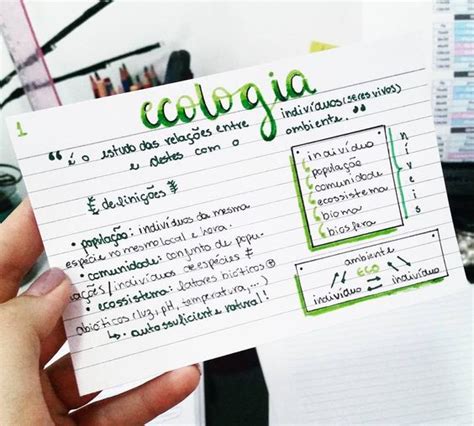 1
ecologia
“é o estudo das relações entre indivíduos (seres vivos)
e destes com o ambiente.”
definições
• população: indivíduos da mesma
espécie no mesmo local e hora.
• comunidade: conjunto de popu-
lações/indivíduos de espécies ≠
• ecossistema: fatores bióticos e
abióticos (luz, pH, temperatura,...)
↳ autossuficiente natural!
indivíduo
população
comunidade
ecossistema
bioma
biosfera
níveis
ambiente
ECO
indivíduo = indivíduo